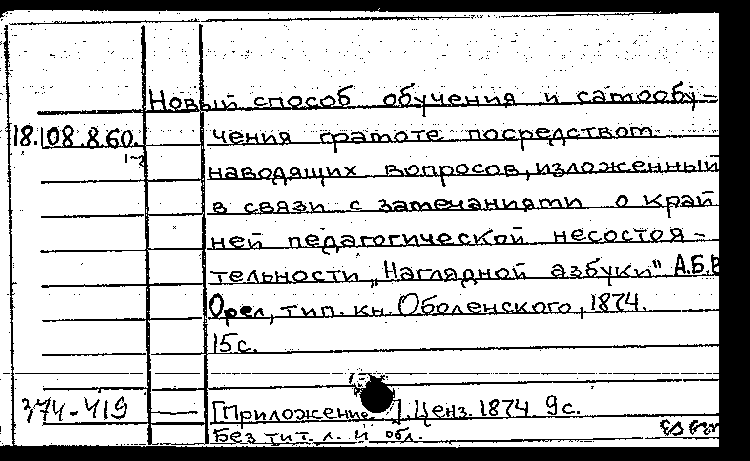 Новый способ обучения и самообу-
18.108.8.60. чения грамоте посредством
1-2 наводящих вопросов, изложенный
в связи с замечаниями о край
ней педагогической несостоя-
тельности „Наглядной азбуки" А.Б.В
Орел, тип. кн. Оболенского, 1874.
15с.
374-419 — [Приложение]. Ценз. 1874. 9с.
Без тит. л. и обл.